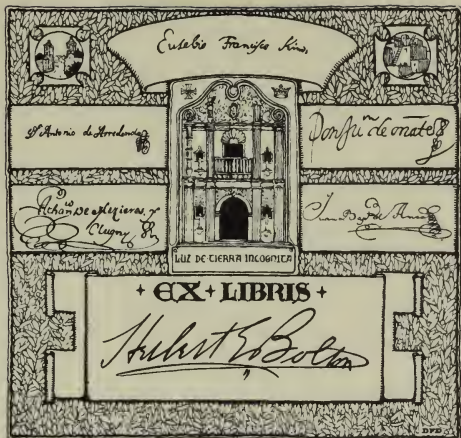 Eusebio Francisco Kino
Dn Antonio de Arredondo
Don Jun de oñate
Athanase De Mezieres y
Clugny
Juan Bapta de Anza
LUZ DE TIERRA INCOGNITA
EX LIBRIS
Herbert E Bolton
DFD